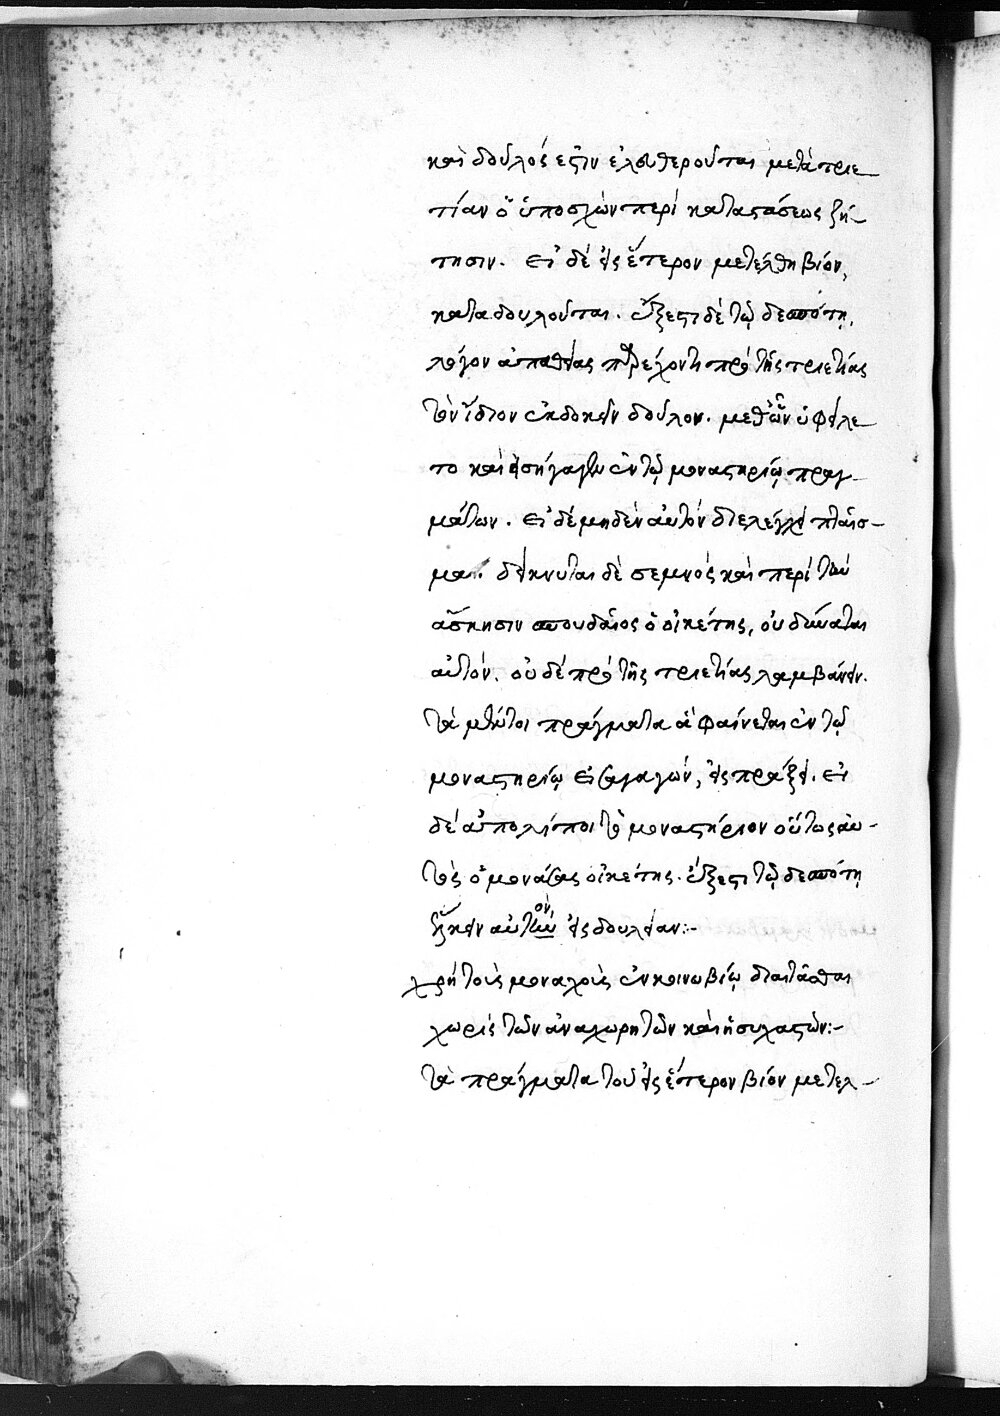 καὶ δοῦλός ἐστιν ἐλευθεροῦται μετὰ τριε-
τίαν ὁ ὑποσχὼν περὶ καταστάσεως ζή-
τησιν. εἰ δὲ εἰς ἕτερον μετέλθη βίον,
καταδουλοῦται. ἔξεστι δὲ τῷ δεσπότῃ,
λόγον ἀπαθείας παρέχοντι πρὸ τῆς τριετίας
τὸν ἴδιον ἐκδικεῖν δοῦλον. μεθ' ὧν ὑφείλε-
το καὶ εἰσήγαγεν ἐν τῷ μοναστηρίῳ πραγ-
μάτων. εἰ δὲ μηδὲν αὐτὸν διελέγχει πταῖσ-
μα. δείκνυται δὲ σεμνὸς καὶ περὶ τὴν
ἄσκησιν σπουδαῖος ὁ οἰκέτης, οὐ δύναται
αὐτόν. οὐδὲ πρὸ τῆς τριετίας λαμβάνειν.
τὰ μέντοι πράγματα ἃ φαίνεται ἐν τῷ
μοναστηρίῳ εἰσαγαγών, εἰσπράξει. εἰ
δὲ ἀπολίποι τὸ μοναστήριον οὕτως αὐ-
τὸς ὁ μονάσας οἰκέτης. ἔξεστι τῷ δεσπότῃ
ἕλκειν αὐτὸν εἰς δουλείαν:-
χρὴ τοὺς μοναχοὺς ἐν κοινωβίῳ διαιτᾶσθαι
χωρὶς τῶν ἀναχωρητῶν καὶ ἡσυχαστῶν:-
τὰ πράγματα τοῦ εἰς ἕτερον βίον μετελ-